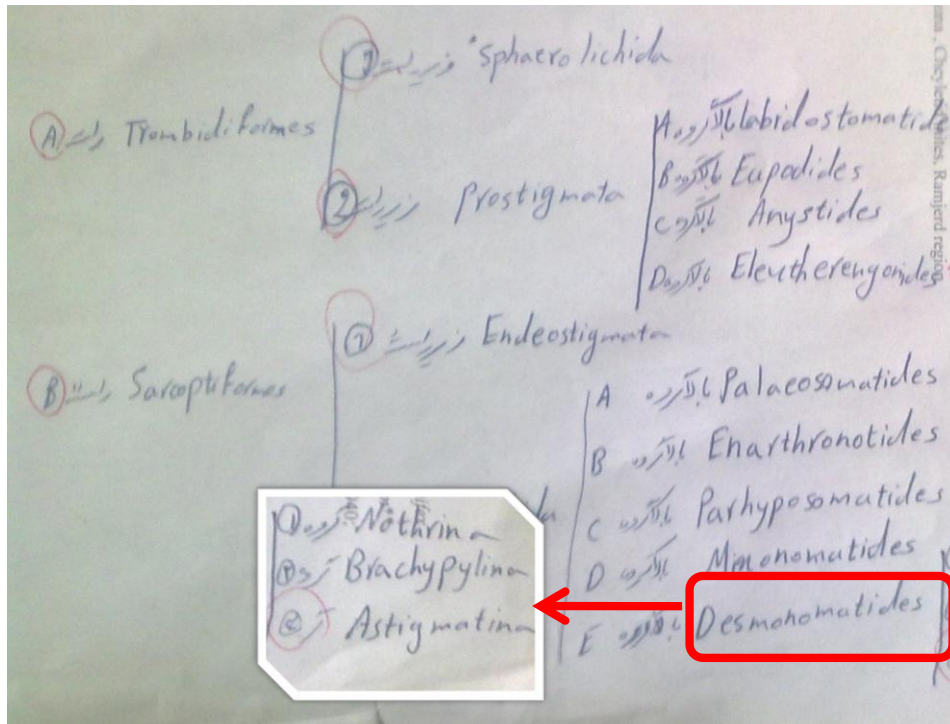 ① زیرراسته Sphaerolichida
A راسته Trombidiformes
② زیرراسته Prostigmata
A بالاگروه Labidostomatid
B بالاگروه Eupodides
C بالاگروه Anystides
D بالاگروه Eleutherengonides
① زیرراسته Endeostigmata
B راسته Sarcoptiformes
A بالاگروه Palaeosomatides
B بالاگروه Enarthronotides
C بالاگروه Parhyposomatides
D بالاگروه Mixonomatides
E بالاگروه Desmonomatides
① گروه Nothrina
② گروه Brachypylina
③ گروه Astigmatina
, Cheyletid Mites, Ramjerd region